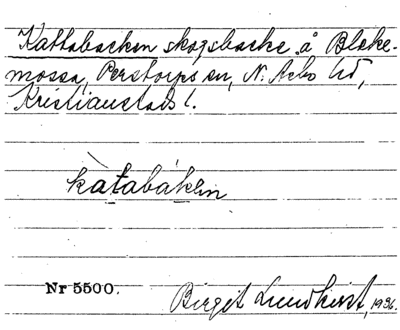 Kattabacken skogsbacke å Bleke-
mossa, Perstorps sn, N. Åsbo hd,
Kristianstads l.
kàtabákən
Nr 5500.
Birgit Lundkvist, 1936.